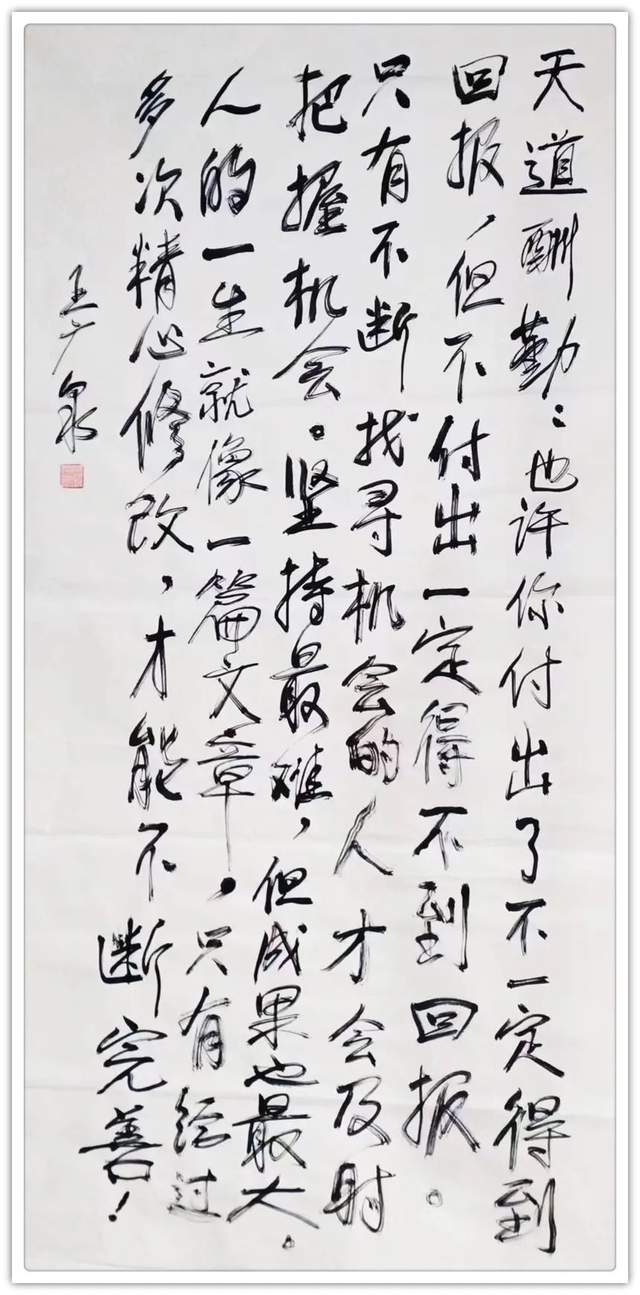 天道酬勤：也许你付出了不一定得到
回报，但不付出一定得不到回报。
只有不断找寻机会的人才会及时
把握机会。坚持最难，但成果也最大。
人的一生就像一篇文章，只有经过
多次精心修改，才能不断完善！
王广泉